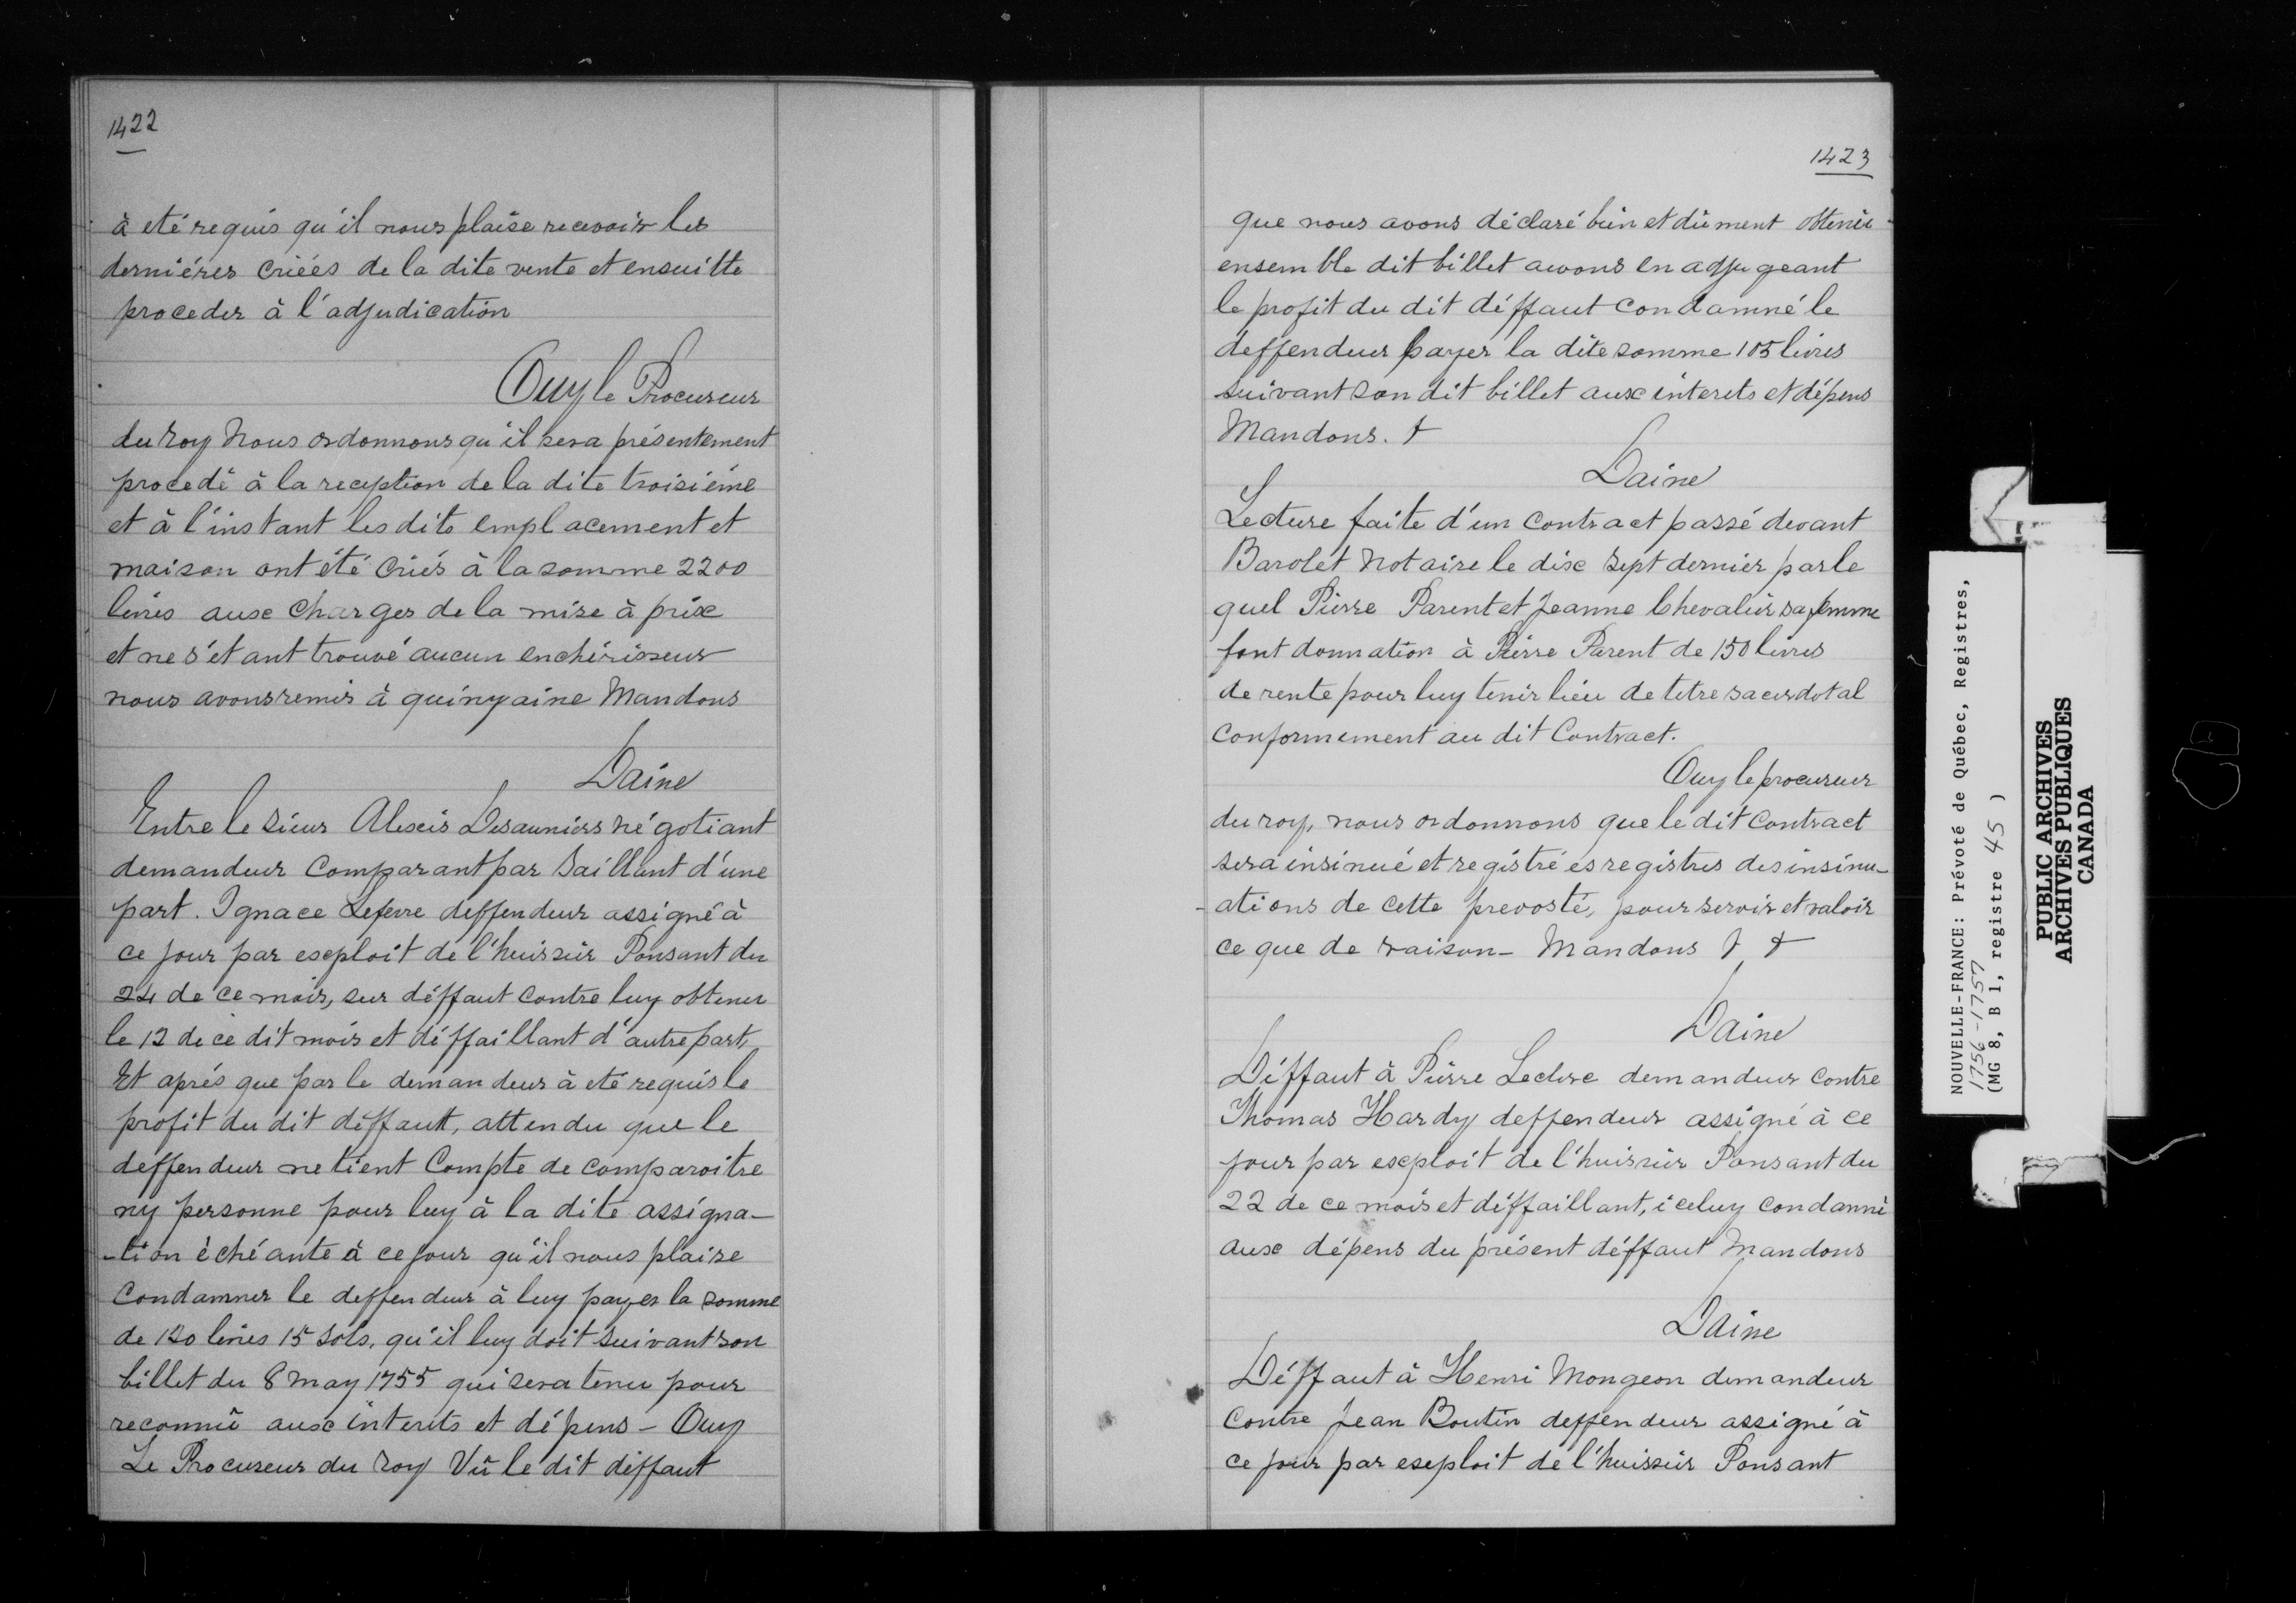 1422
à eté requis qu'il nous plaise recevoir les
derniéres criéés de la dite vente et ensuitte
proceder à l'adjudication
Ouy le Procureur
du roy Nous ordonnons qu'il sera présentement
procedé à la reception de la dite troisiéme
et à l'instant les dits emplacement et
maison ont été criés à la somme 2200
livres aux charges de la mise à prix
et ne s'étant trouvé aucun enchérisseur
nous avons remis à quinzaine Mandons
Daine
Entre le sieur Alexis Desauniers négotiant
demandeur Comparant par Saillant d'une
part. Ignace Lefevre deffendeur assigné à
ce jour par exploit de l'huissier Ponsant du
24 de ce mois, sur déffaut contre luy obtenu
le 12 de ce dit mois et déffaillant d'autre part,
Et aprés que par le demandeur à eté requis le
profit du dit déffaut, attendu que le
deffendeur ne tient Compte de comparoitre
ny personne pour luy à la dite assigna-
-tion échéante à ce jour qu'il nous plaise
Condamner le deffendeur à luy payer la somme
de 120 livres 15 sols, qu'il luy doit suivant son
billet du 8 may 1755 qui sera tenu pour
reconnû aux interits et dépens - Ouy
Le Procureur du roy Vû le dit déffaut
1423
que nous avons déclaré bien et dûment obtenu
ensemble dit billet avons en adjugeant
le profit du dit déffaut condamné le
deffendeur payer la dite somme 105 livres
suivant son dit billet aux interets et dépens
Mandons. †
Daine
Lecture faite d'un contract passé devant
Barolet notaire le dix sept dernier par le
quel Pierre Parent et Jeanne Chevalier sa femme
font donnation à Pierre Parent de 150 livres
de rente pour luy tenir lieu de titre sacerdotal
conformement au dit Contract.
Ouy le procureur
du roy, nous ordonnons que le dit contract
sera insinué et registré es registres des insinu-
-ations de cette prevosté, pour servir et valoir
ce que de raison - Mandons † †
Daine
Déffaut à Pierre Leclerc demandeur contre
Thomas Hardy deffendeur assigné à ce
jour par exploit de l'huissier Ponsant du
22 de ce mois et déffaillant, iceluy condamné
aux dépens du présent déffaut Mandons
Daine
Déffaut à Henri Mongeon demandeur
contre Jean Boutin deffendeur assigné à
ce jour par exploit de l'huissier Ponsant
NOUVELLE-FRANCE: Prévoté de Québec, Registres,
1756-1757
(MG 8, B 1, registre 45 )
PUBLIC ARCHIVES
ARCHIVES PUBLIQUES
CANADA